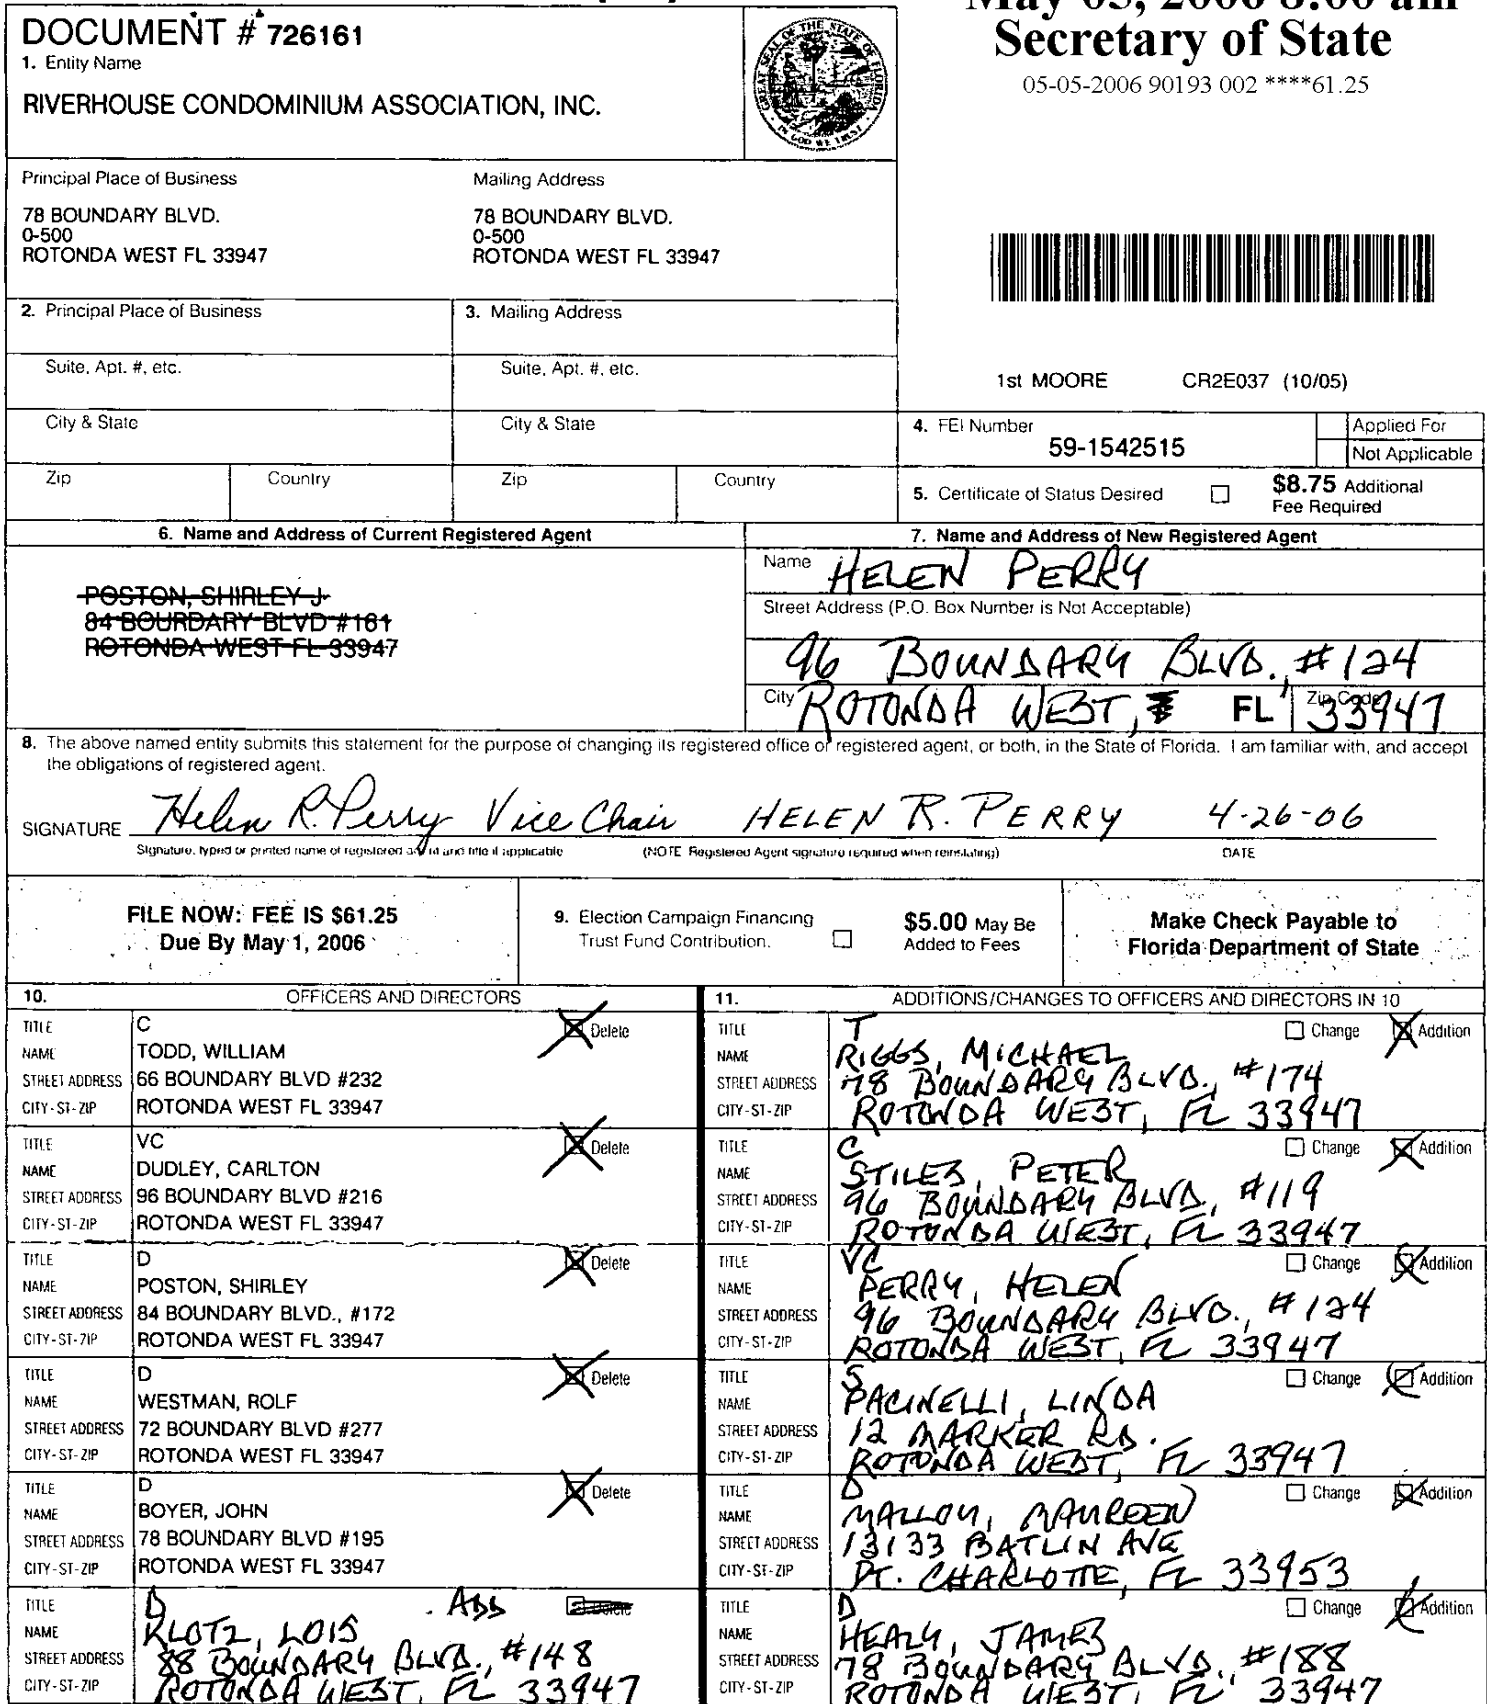 DOCUMENT # 726161
1. Entity Name
RIVERHOUSE CONDOMINIUM ASSOCIATION, INC.
GREAT SEAL OF THE STATE OF FLORIDA
IN GOD WE TRUST
Secretary of State
05-05-2006 90193 002 ****61.25
Principal Place of Business
78 BOUNDARY BLVD.
0-500
ROTONDA WEST FL 33947
Mailing Address
78 BOUNDARY BLVD.
0-500
ROTONDA WEST FL 33947
2. Principal Place of Business
3. Mailing Address
Suite, Apt. #, etc.
Suite, Apt. #, etc.
1st MOORE CR2E037 (10/05)
City & State
City & State
4. FEI Number
59-1542515
Applied For
Not Applicable
Zip
Country
Zip
Country
5. Certificate of Status Desired
$8.75 Additional
Fee Required
6. Name and Address of Current Registered Agent
POSTON, SHIRLEY J
84 BOURDARY BLVD #161
ROTONDA WEST FL 33947
7. Name and Address of New Registered Agent
Name HELEN PERRY
Street Address (P.O. Box Number is Not Acceptable)
96 BOUNDARY BLVD., #124
City ROTONDA WEST, FL Zip Code 33947
8. The above named entity submits this statement for the purpose of changing its registered office or registered agent, or both, in the State of Florida. I am familiar with, and accept
the obligations of registered agent.
SIGNATURE Helen R. Perry Vice Chair HELEN R. PERRY 4-26-06
Signature, typed or printed name of registered agent and title if applicable (NOTE Registered Agent signature required when reinstating) DATE
FILE NOW: FEE IS $61.25
Due By May 1, 2006
9. Election Campaign Financing
Trust Fund Contribution.
$5.00 May Be
Added to Fees
Make Check Payable to
Florida Department of State
10. OFFICERS AND DIRECTORS
TITLE C Delete
NAME TODD, WILLIAM
STREET ADDRESS 66 BOUNDARY BLVD #232
CITY-ST-ZIP ROTONDA WEST FL 33947
TITLE VC Delete
NAME DUDLEY, CARLTON
STREET ADDRESS 96 BOUNDARY BLVD #216
CITY-ST-ZIP ROTONDA WEST FL 33947
TITLE D Delete
NAME POSTON, SHIRLEY
STREET ADDRESS 84 BOUNDARY BLVD., #172
CITY-ST-ZIP ROTONDA WEST FL 33947
TITLE D Delete
NAME WESTMAN, ROLF
STREET ADDRESS 72 BOUNDARY BLVD #277
CITY-ST-ZIP ROTONDA WEST FL 33947
TITLE D Delete
NAME BOYER, JOHN
STREET ADDRESS 78 BOUNDARY BLVD #195
CITY-ST-ZIP ROTONDA WEST FL 33947
TITLE D ADD
NAME KLOTZ, LOIS
STREET ADDRESS 88 BOUNDARY BLVD., #148
CITY-ST-ZIP ROTONDA WEST, FL 33947
11. ADDITIONS/CHANGES TO OFFICERS AND DIRECTORS IN 10
TITLE T Change Addition
NAME RIGGS, MICHAEL
STREET ADDRESS 78 BOUNDARY BLVD., #174
CITY-ST-ZIP ROTONDA WEST, FL 33947
TITLE C Change Addition
NAME STILES, PETER
STREET ADDRESS 96 BOUNDARY BLVD., #119
CITY-ST-ZIP ROTONDA WEST, FL 33947
TITLE VC Change Addition
NAME PERRY, HELEN
STREET ADDRESS 96 BOUNDARY BLVD., #124
CITY-ST-ZIP ROTONDA WEST, FL 33947
TITLE S Change Addition
NAME PACINELLI, LINDA
STREET ADDRESS 12 MARKER RD.
CITY-ST-ZIP ROTONDA WEST, FL 33947
TITLE D Change Addition
NAME MALLOY, MAUREEN
STREET ADDRESS 13133 BATLIN AVE
CITY-ST-ZIP PT. CHARLOTTE, FL 33953
TITLE D Change Addition
NAME HEALY, JAMES
STREET ADDRESS 78 BOUNDARY BLVD., #188
CITY-ST-ZIP ROTONDA WEST, FL 33947